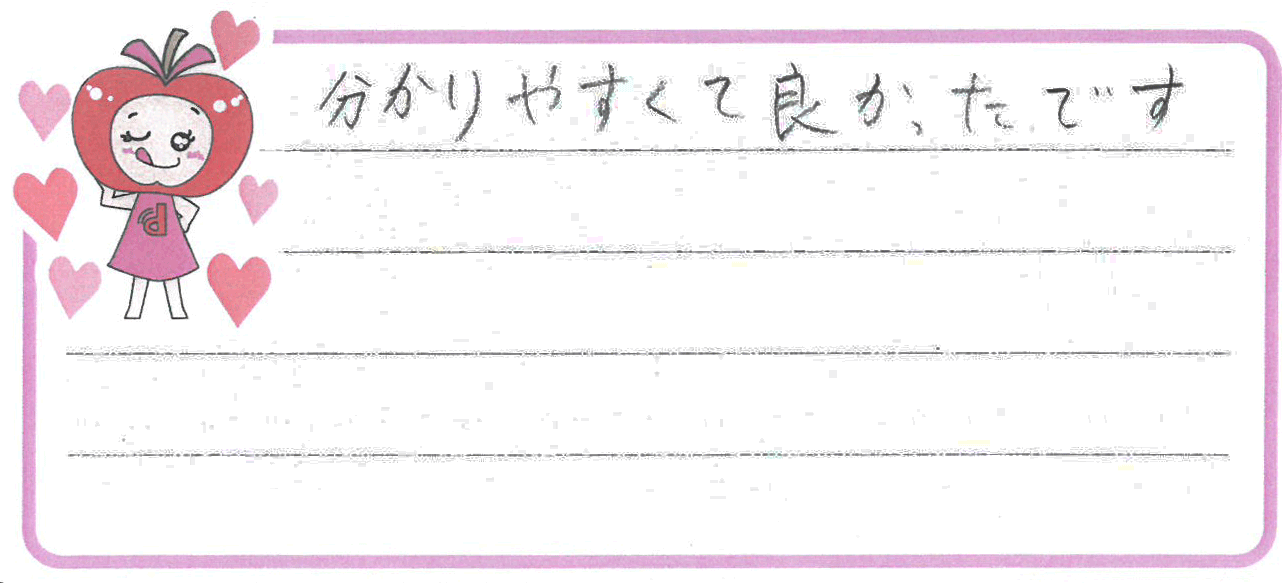 分かりやすくて良かったです